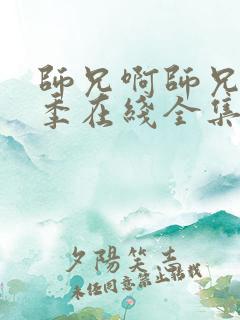 師兄啊師兄
季在綫全集
夕陽笑去
未任同意禁止轉載